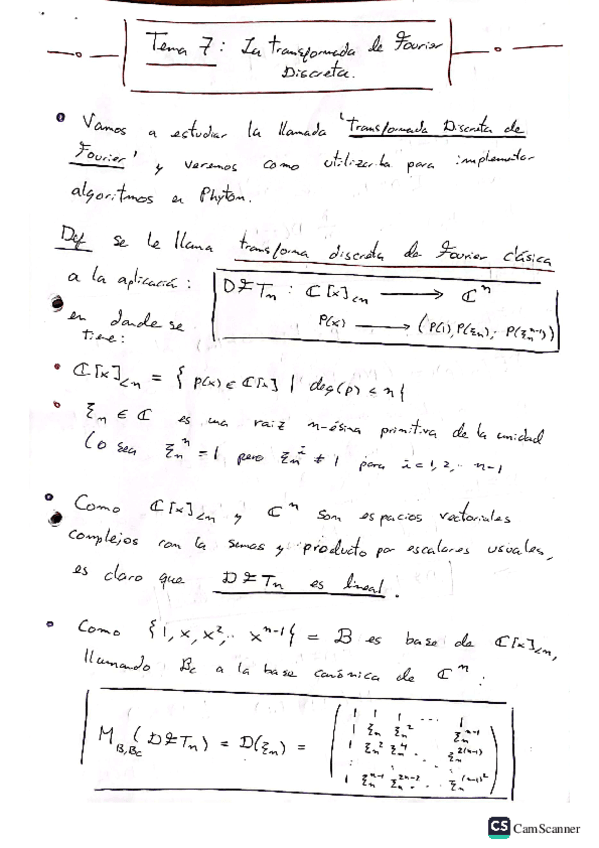 Tema 7: La transformada de Fourier
Discreta.
Vamos a estudiar la llamada 'Transformada Discreta de
Fourier' y veremos como utilizarla para implementar
algoritmos en Phyton.
Def se le llama transforma discreta de Fourier clásica
a la aplicación: DFTn : ℂ[x]<n ⟶ ℂⁿ
P(x) ⟶ (P(1), P(ξn), ·· P(ξn^(n-1)))
en donde se
tiene:
• ℂ[x]<n = { p(x) ∈ ℂ[x] | deg(p) < n }
• ξn ∈ ℂ es una raiz n-ésima primitiva de la unidad
(o sea ξn^n = 1 pero ξn^i ≠ 1 para i = 1, 2, ·· n-1
Como ℂ[x]<n y ℂⁿ son espacios vectoriales
complejos con la sumas y producto por escalares usuales,
es claro que DFTn es lineal.
Como {1, x, x², ·· x^(n-1)} = B es base de ℂ[x]<n,
llamando Bc a la base canónica de ℂⁿ:
M_B,Bc (DFTn) = D(ξn) =
1 1 1 ... 1
1 ξn ξn² ξn^(n-1)
1 ξn² ξn⁴ ... ξn^(2(n-1))
1 ξn^(n-1) ξn^(2n-2) ... ξn^((n-1)²)
CS CamScanner